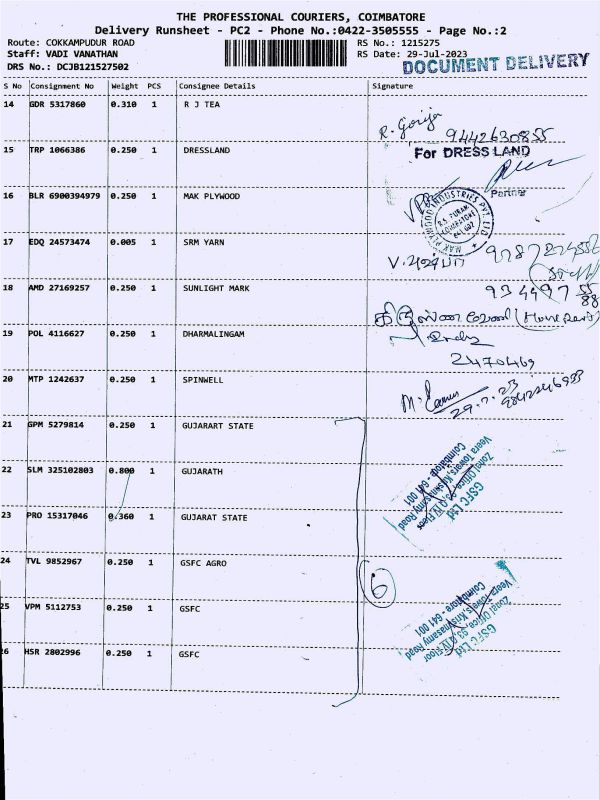 THE PROFESSIONAL COURIERS, COIMBATORE
Delivery Runsheet - PC2 - Phone No.:0422-3505555 - Page No.:2
Route: COKKAMPUDUR ROAD RS No.: 1215275
Staff: VADI VANATHAN RS Date: 29-Jul-2023
DRS No.: DCJB121527502 DOCUMENT DELIVERY
S No Consignment No Weight PCS Consignee Details Signature
14 GDR 5317860 0.310 1 R J TEA
R. Girija 9442630855
15 TRP 1066386 0.250 1 DRESSLAND For DRESS LAND
Partner
16 BLR 6900394979 0.250 1 MAK PLYWOOD
MAK PLYWOOD INDUSTRIES PVT. LTD
R.S. PURAM
COIMBATORE
641 002
17 EDQ 24573474 0.005 1 SRM YARN
18 AMD 27169257 0.250 1 SUNLIGHT MARK
19 POL 4116627 0.250 1 DHARMALINGAM
2470469
20 MTP 1242637 0.250 1 SPINWELL
29.7.23
21 GPM 5279814 0.250 1 GUJARART STATE
22 SLM 325102803 0.800 1 GUJARATH
GSFC Ltd
Zonal Office, 93, G IV Floor
Veera Towers, Krishnasamy Road
Coimbatore - 641 001
23 PRO 15317046 0.360 1 GUJARAT STATE
24 TVL 9852967 0.250 1 GSFC AGRO
6
25 VPM 5112753 1 0.250 GSFC
26 HSR 2802996 0.250 1 GSFC
GSFC Ltd
Zonal Office, 93, G IV Floor
Veera Towers, Krishnasamy Road
Coimbatore - 641 001